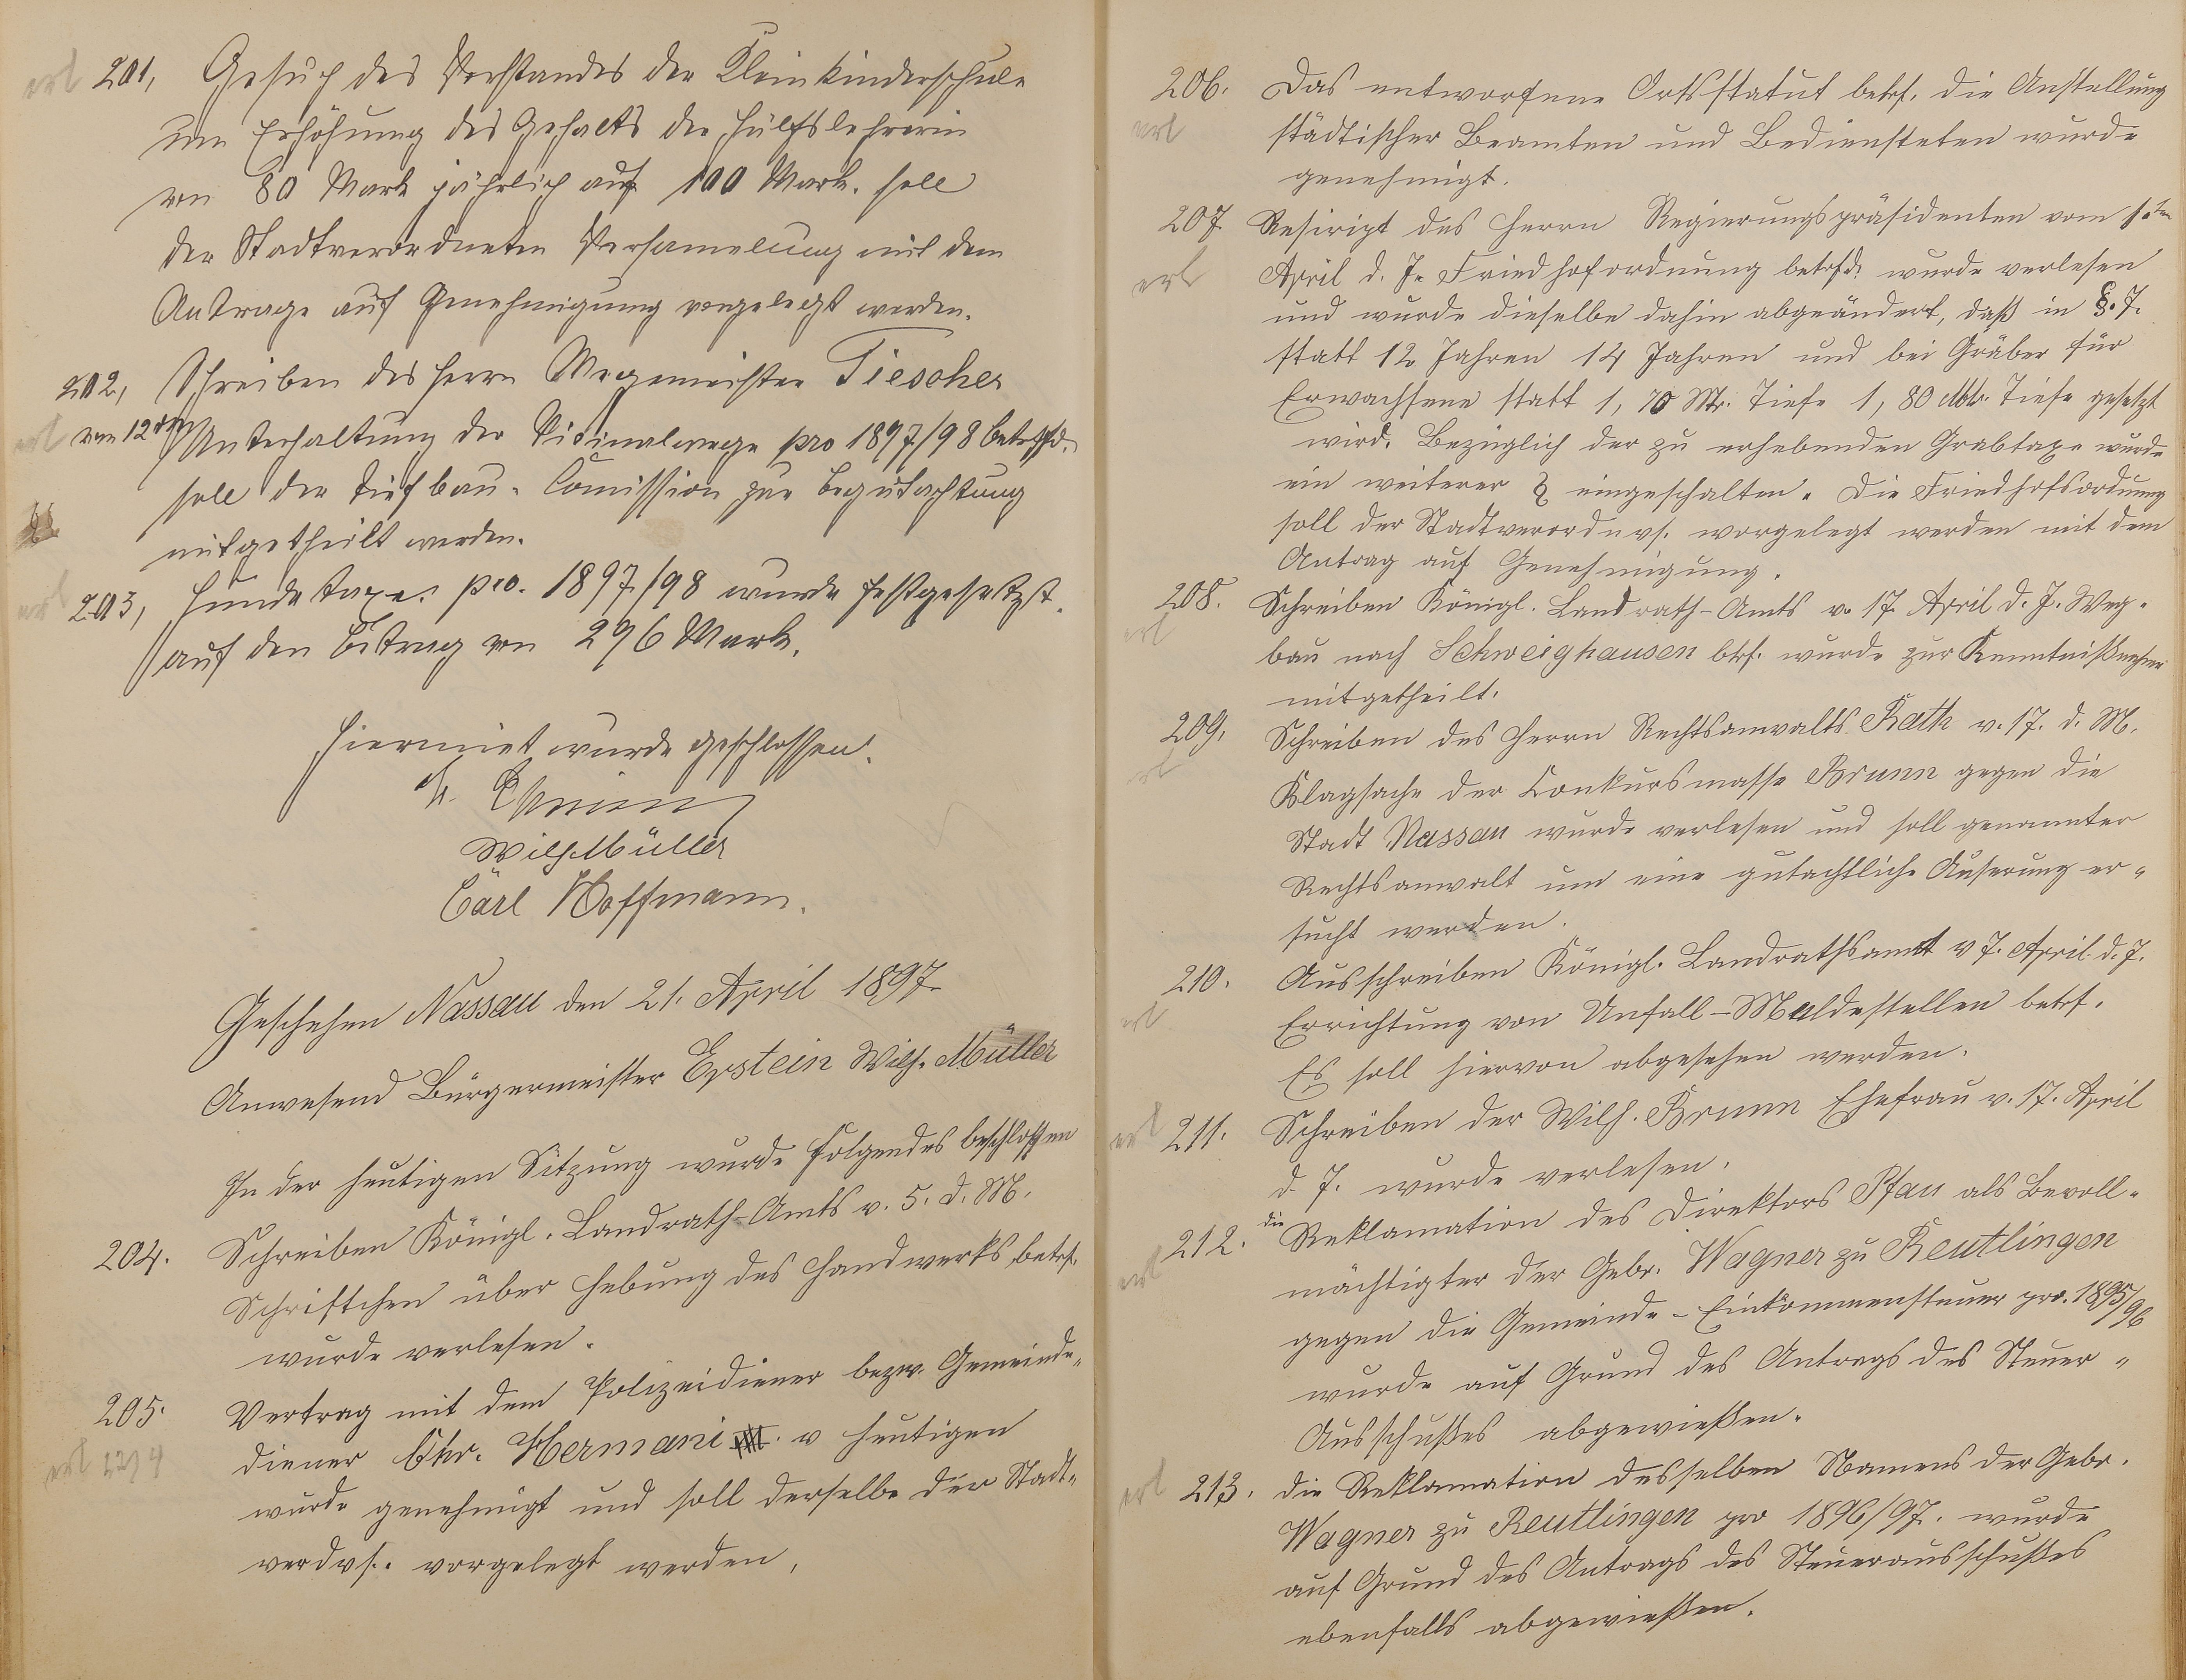 erl 201, Gesuch des Vorstandes der Kleinkinderschule
um Erhöhung des Gehalts der Hülfslehrerin
von 80 Mark jährlich auf 100 Mark. soll
der Stadtverordneten Versamelung mit dem
Antrage auf Genehmigung vorgelegt werden.
202, Schreiben des Herrn Wegemeister Tiescher
erl vom 12ten Unterhaltung der Vicinalwege pro 1897/98 betrffd.
soll der Tiefbau-Comission zur Begutachtung
mitgetheilt werden.
erl 203, Hundetaxe: pro. 1897/98 wurde festgesetzt.
auf den Betrag von 296 Mark.
Hiermit wurde geschlossen.
Wilh. Müller
Carl Hoffmann.
Geschehen Nassau den 21. April 1897.
Anwesend Bürgermeister Epstein Wilh. Müller
In der heutigen Sitzung wurde folgendes beschlossen
204. Schreiben Königl. Landrath-Amts v. 5. d. M.
Schriftchen über Hebung des Handwerks betrf.
wurde verlesen.
205. Vertrag mit dem Polizeidiener bezw. Gemeinde-
diener Chr. Hermani v heutigen
erl 22/4
wurde genehmigt und soll derselbe der Stadt-
verdvs. vorgelegt werden.
206. Das entworfene Ortsstatut betrf. die Anstellung
erl städtischer Beamten und Bediensteten wurde
genehmigt.
207 Resiript des Herrn Regierungspräsidenten vom 1.ten
erl April d. J. Friedhofordnung betrfd. wurde verlesen
und wurde dieselbe dahin abgeändert, daß in §. 7.
statt 12 Jahren 14 Jahren und bei Gräber für
Erwachsene statt 1,70 Mtr. Tiefe 1,80 Mtr. Tiefe gesetzt
wird. Bezüglich der zu erhebenden Grabtaxe wurde
ein weiterer § eingeschalten. Die Friedhofsordnung
soll der Stadtverordnvs. vorgelegt werden mit dem
Antrag auf Genehmigung.
208. Schreiben Königl. Landrath-Amts v. 17. April d. J. Weg-
erl bau nach Schweighausen btrf. wurde zur Kenntnißnahme
mitgetheilt.
209, Schreiben des Herrn Rechtsanwalts Rath v. 17. d. M.
erl Klagsache der Konkursmasse Brunn gegen die
Stadt Nassau wurde verlesen und soll genannter
Rechtsanwalt um eine gutachtliche Äuserung er-
sucht werden.
210. Ausschreiben Königl. Landrathsamt v 7. April d. J.
erl Errichtung von Unfall-Meldestellen betrf.
Es soll hiervon abgesehen werden.
erl 211. Schreiben der Wilh. Brunn Ehefrau v. 17. April
d. J. wurde verlesen.
212. die Reklamation des Direktors Pfau als Bevoll-
erl mächtigter der Gebr. Wagner zu Reutlingen
gegen die Gemeinde-Einkommensteuer pro. 1895/96
wurde auf Grund des Antrags des Steuer-
Ausschußes abgewießen.
erl 213. die Reklamation desselben Namens der Gebr.
Wagner zu Reutlingen pro 1896/97. wurde
auf Grund des Antrags des Steuerausschußes
ebenfalls abgewießen.